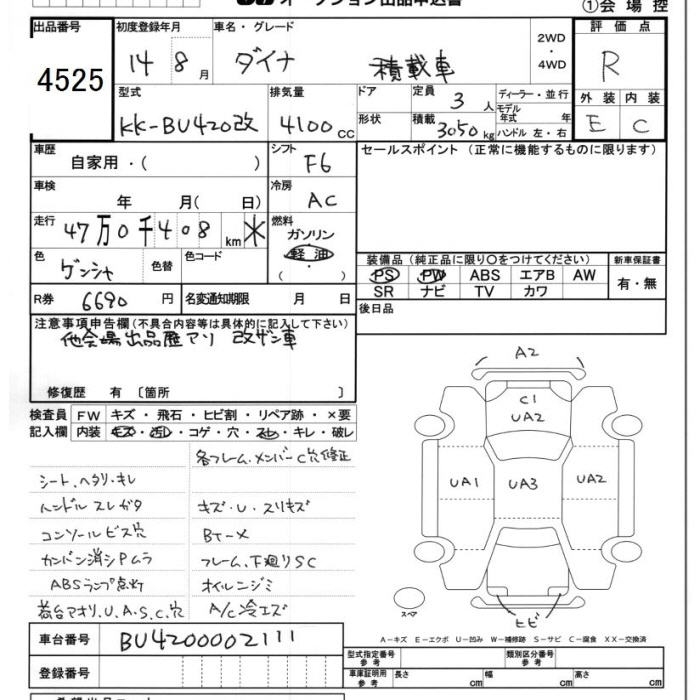 オークション出品申込書
①会場控
出品番号 初度登録年月 車名・グレード 2WD・4WD 評価点
4525 14 8月 ダイナ 積載車 R
型式 排気量 ドア 定員 3人 ディーラー・並行 外装 内装
KK-BU420改 4100cc 形状 積載 3050kg モデル年式 年 ハンドル 左・右 E C
車歴 自家用・( ) シフト F6 セールスポイント (正常に機能するものに限ります)
車検 年 月( 日) 冷房 AC
走行 47万0千408km 米 燃料 ガソリン 軽油 ( )
色 ゲンシャ 色替 色コード
装備品 (純正品に限り○をつけてください) 新車保証書
PS PW ABS エアB AW 有・無
SR ナビ TV カワ
R券 6690円 名変通知期限 月 日 後日品
注意事項申告欄(不具合内容等は具体的に記入して下さい)
他会場出品歴アリ 改ザン車
修復歴 有 〔箇所 〕
検査員 FW キズ・飛石・ヒビ割・リペア跡・×要
記入欄 内装 キズ・汚レ・コゲ・穴・スレ・キレ・破レ
各フレーム.メンバーC穴修正
シート.ヘタリ・キレ
ハンドル スレガタ キズ・U・スリキズ
コンソールビス穴 BT-メ
カンバン消シPムラ フレーム.下廻りSC
ABSランプ点灯 オイルニジミ
荷台アオリ.U.A.S.C.穴 A/C冷エズ
A2
C1
UA2
UA1 UA3 UA2
スペア
ヒビ
A-キズ E-エクボ U-凹み W-補修跡 S-サビ C-腐食 XX-交換済
車台番号 BU4200002111
型式指定番号 参考 類別区分番号 参考
登録番号 車庫証明用 参考 長さ cm 幅 cm 高さ cm